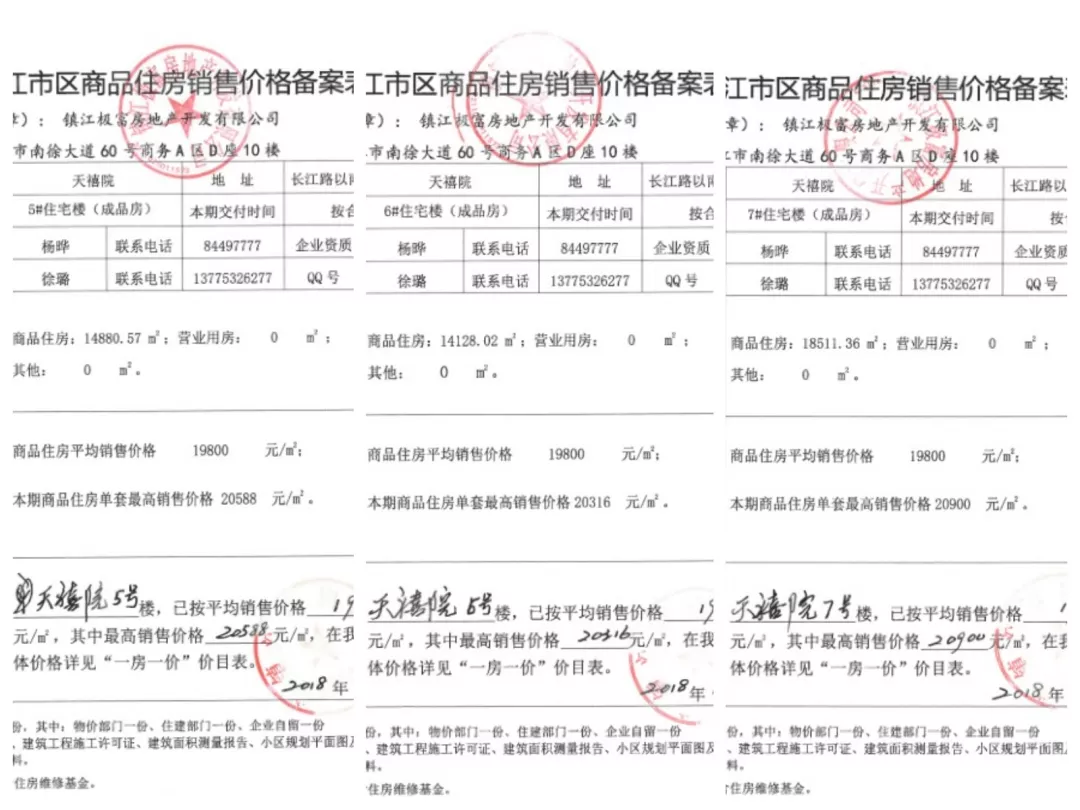 江市区商品住房销售价格备案表
章): 镇江极富房地产开发有限公司
市南徐大道 60 号商务 A 区 D 座 10 楼
天禧院 地 址 长江路以南
5#住宅楼(成品房) 本期交付时间 按合
杨晔 联系电话 84497777 企业资质
徐璐 联系电话 13775326277 QQ 号
商品住房: 14880.57 ㎡; 营业用房: 0 ㎡;
其他: 0 ㎡。
商品住房平均销售价格 19800 元/㎡;
本期商品住房单套最高销售价格 20588 元/㎡。
天禧院 5号楼, 已按平均销售价格 19
元/㎡, 其中最高销售价格 20588 元/㎡, 在我
体价格详见“一房一价”价目表。
2018 年
份, 其中: 物价部门一份、住建部门一份、企业自留一份
、建筑工程施工许可证、建筑面积测量报告、小区规划平面图及
料。
住房维修基金。
江市区商品住房销售价格备案表
章): 镇江极富房地产开发有限公司
市南徐大道 60 号商务 A 区 D 座 10 楼
天禧院 地 址 长江路以南
6#住宅楼(成品房) 本期交付时间 按合
杨晔 联系电话 84497777 企业资质
徐璐 联系电话 13775326277 QQ 号
商品住房: 14128.02 ㎡; 营业用房: 0 ㎡;
其他: 0 ㎡。
商品住房平均销售价格 19800 元/㎡;
本期商品住房单套最高销售价格 20316 元/㎡。
天禧院 6号楼, 已按平均销售价格 19
元/㎡, 其中最高销售价格 20316 元/㎡, 在我
体价格详见“一房一价”价目表。
2018 年
份, 其中: 物价部门一份、住建部门一份、企业自留一份
、建筑工程施工许可证、建筑面积测量报告、小区规划平面图及
料。
住房维修基金。
江市区商品住房销售价格备案表
章): 镇江极富房地产开发有限公司
江市南徐大道 60 号商务 A 区 D 座 10 楼
天禧院 地 址 长江路以南
7#住宅楼(成品房) 本期交付时间 按合
杨晔 联系电话 84497777 企业资质
徐璐 联系电话 13775326277 QQ 号
商品住房: 18511.36 ㎡; 营业用房: 0 ㎡;
其他: 0 ㎡。
商品住房平均销售价格 19800 元/㎡;
本期商品住房单套最高销售价格 20900 元/㎡。
天禧院 7号楼, 已按平均销售价格 1
元/㎡, 其中最高销售价格 20900 元/㎡, 在我
体价格详见“一房一价”价目表。
2018 年
份, 其中: 物价部门一份、住建部门一份、企业自留一份
、建筑工程施工许可证、建筑面积测量报告、小区规划平面图及
料。
住房维修基金。